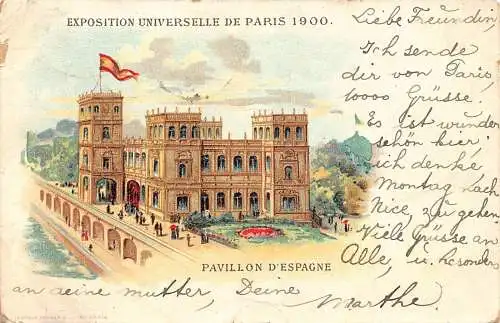 EXPOSITION UNIVERSELLE DE PARIS 1900.
Liebe Freundin,
Ich sende
dir von Paris,
10000 Grüsse.
Es ist wunder
schön hier;
ich denke
Montag nach
Nice, zu gehen.
Viele Grüsse an
Alle, u. besonders
an deine Mutter, Deine
Marthe.
PAVILLON D'ESPAGNE